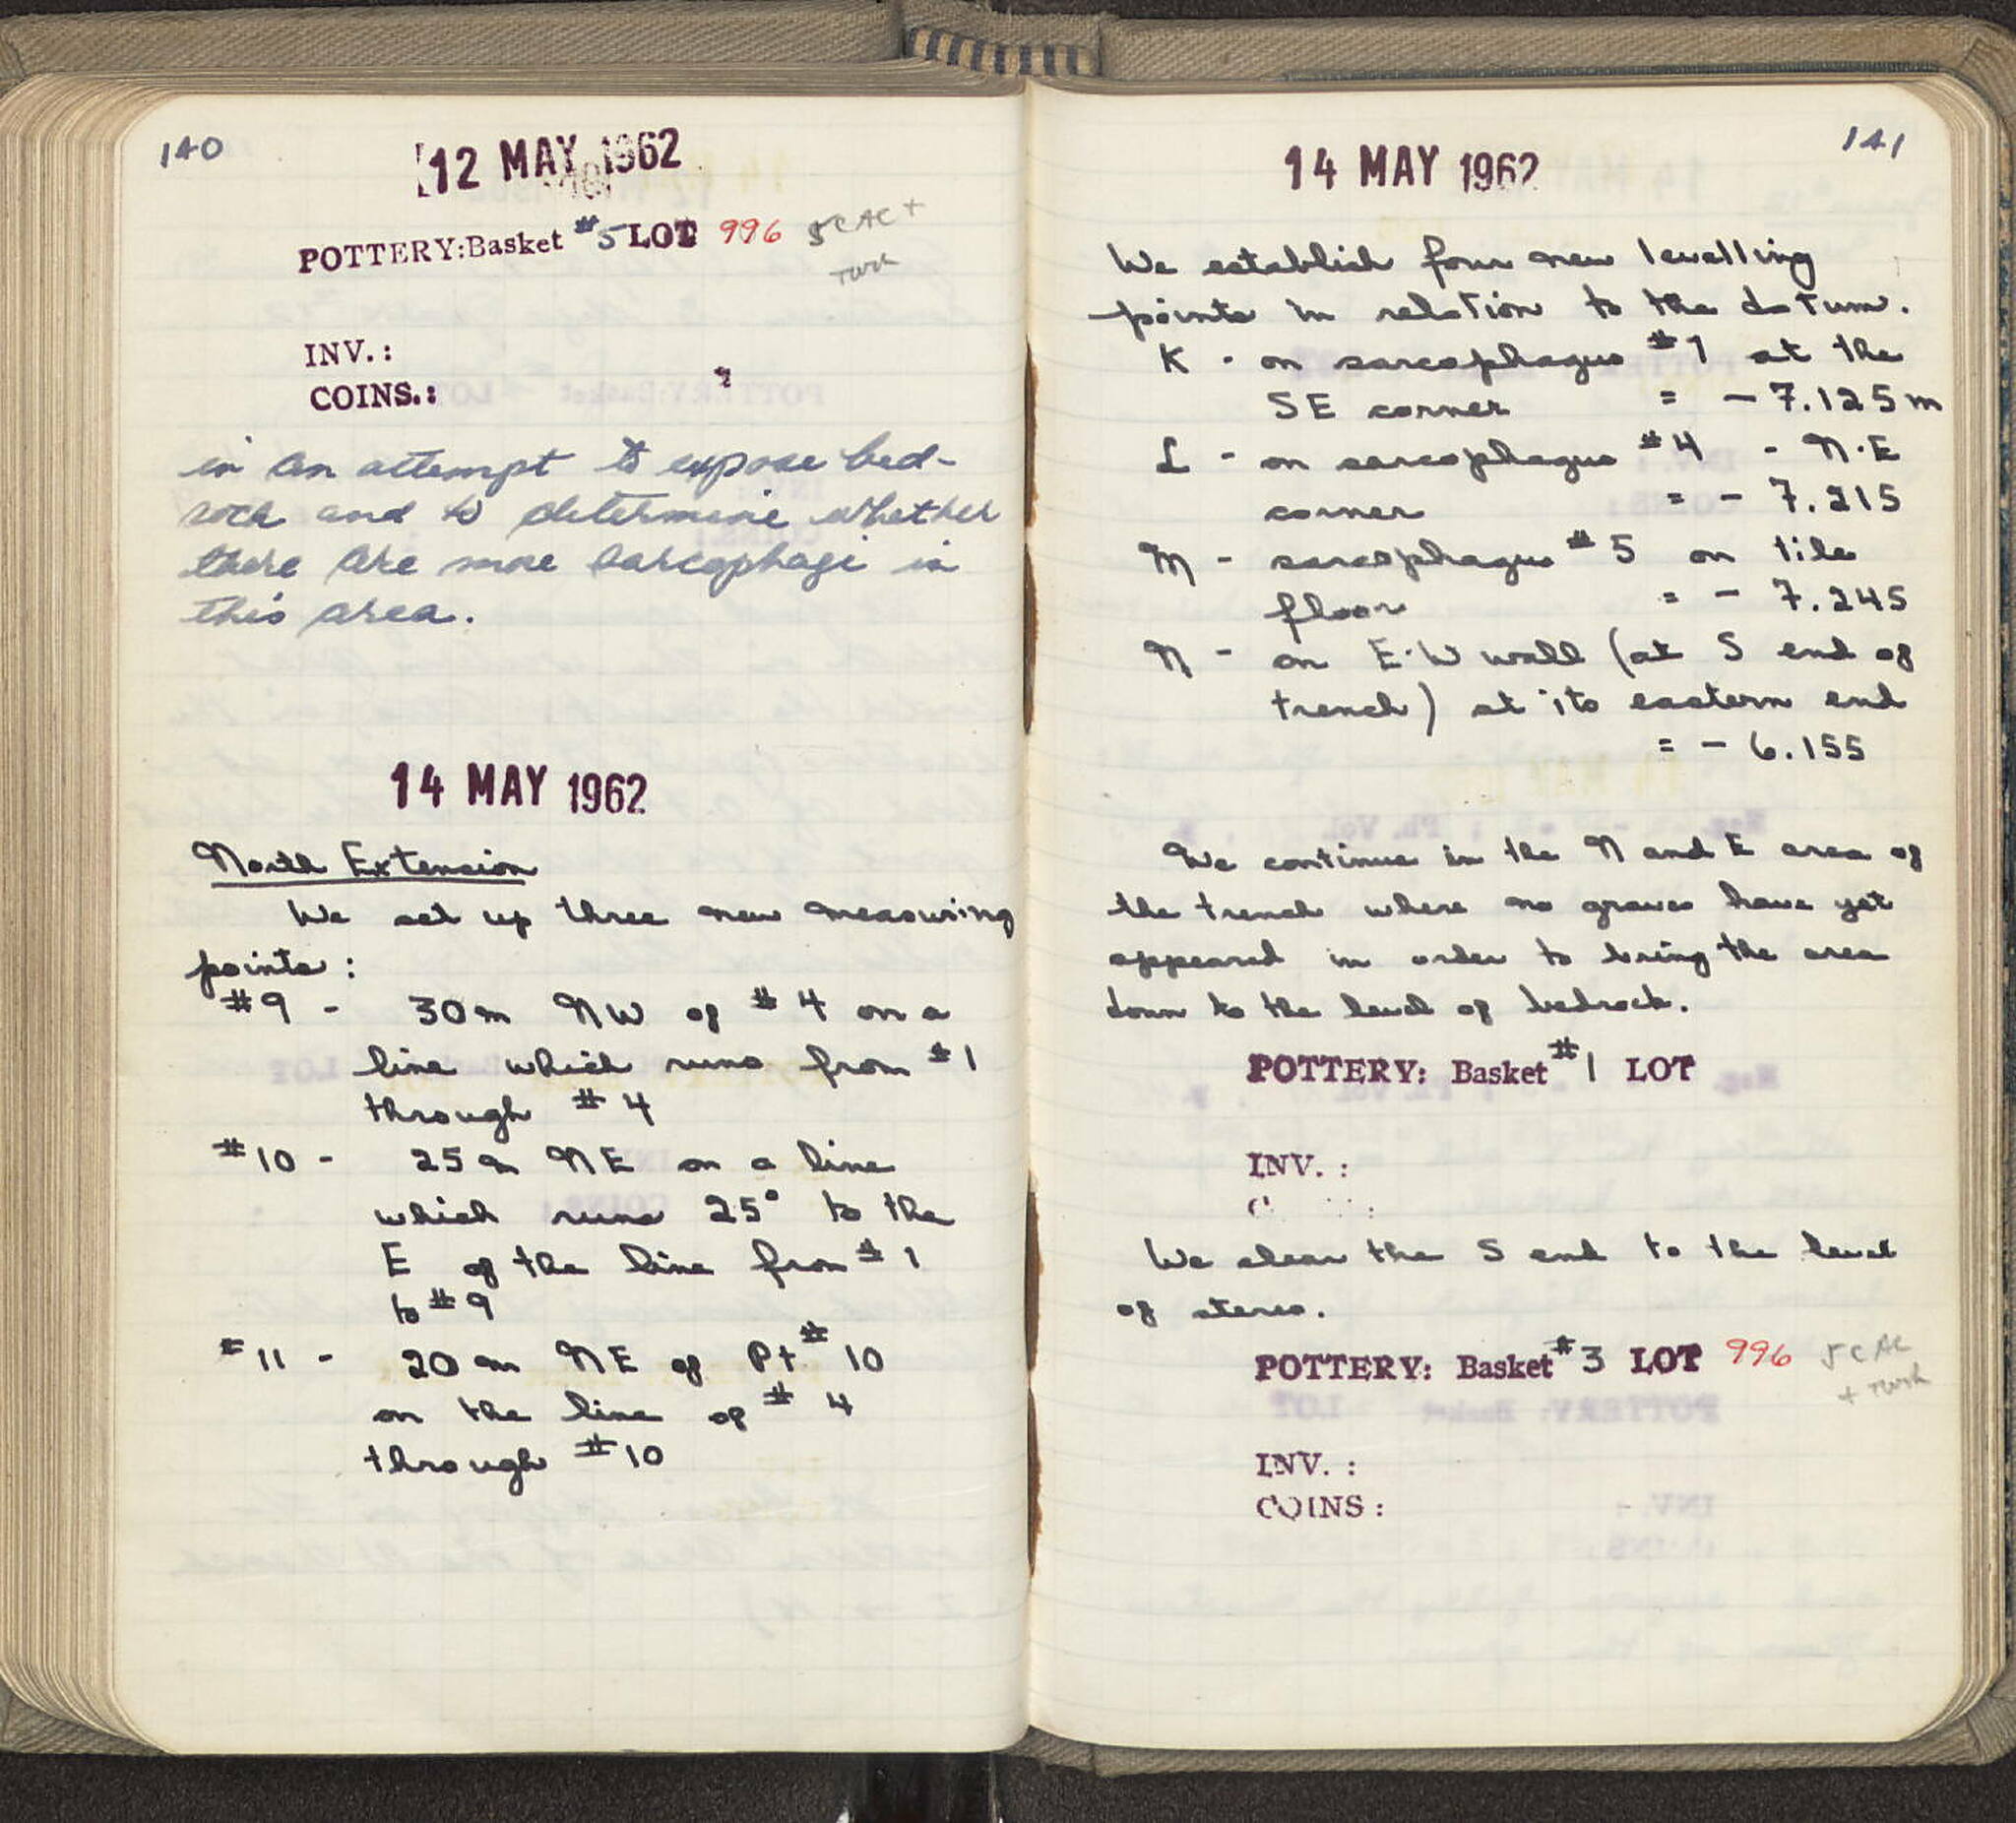 140
12 MAY 1962
POTTERY: Basket #5 LOT 996 5C AC +
INV.:
COINS.:
in an attempt to expose bed-
rock and to determine whether
there are more sarcophagi in
this area.
14 MAY 1962
North Extension
We set up three new measuring
points:
#9 - 30m NW of #4 on a
line which runs from #1
through #4
#10 - 25m NE on a line
which runs 25° to the
E of the line from #1
to #9
#11 - 20m NE of Pt #10
on the line of #4
through #10
141
14 MAY 1962
We establish four new levelling
points in relation to the datum.
K - on sarcophagus #1 at the
SE corner = - 7.125m
L - on sarcophagus #4 - N.E
corner = - 7.215
M - sarcophagus #5 on tile
floor = - 7.245
N - on E-W wall (at S end of
trench) at its eastern end
= - 6.155
We continue in the N and E area of
the trench where no graves have yet
appeared in order to bring the area
down to the level of bedrock.
POTTERY: Basket #1 LOT
INV. :
We clear the S end to the level
of stereo.
POTTERY: Basket #3 LOT 996 5C AC
INV. :
COINS :